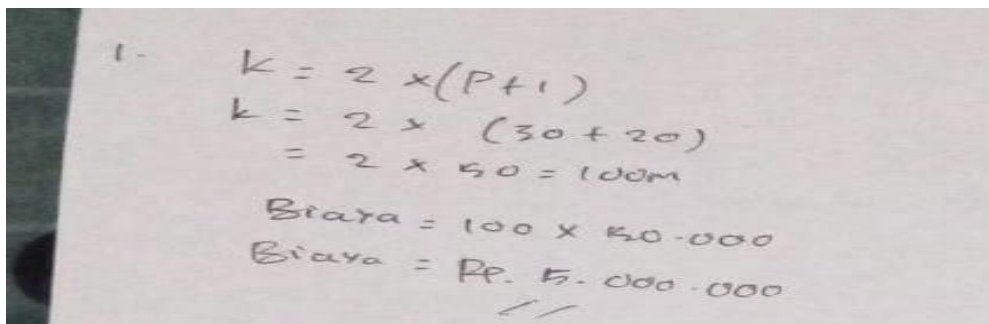 1. K = 2 x (P + l)
k = 2 x (30 + 20)
= 2 x 50 = 100m
Biaya = 100 x 50.000
Biaya = Rp. 5.000.000